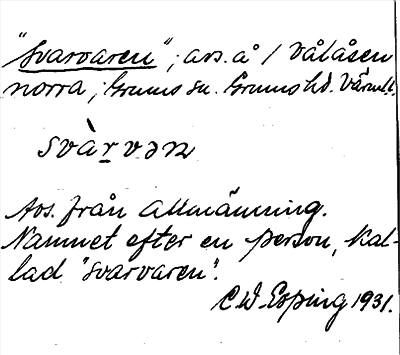 "Svarvaren"; avs. å 1 Vålåsen
norra; Grums sn. Grums hd. Värml.
svàr̲vən
Avs. från allmänning.
Namnet efter en person, kal-
lad "Svarvaren".
C W Esping 1931.